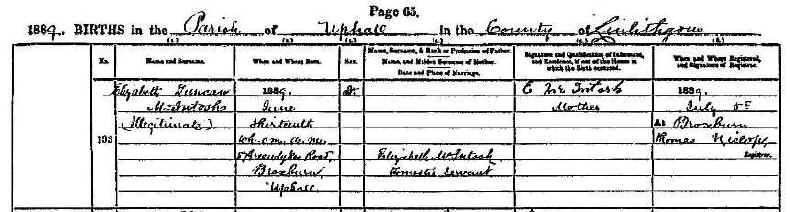 Page 65.
1889. BIRTHS in the Parish of Uphall in the County of Linlithgow
(1.) (2.) (3.) (4.) (5.) (6.)
No. Name and Surname. When and Where Born. Sex. Name, Surname, & Rank or Profession of Father. Name, and Maiden Surname of Mother. Date and Place of Marriage. Signature and Qualification of Informant, and Residence, if out of the House in which the Birth occurred. When and Where Registered, and Signature of Registrar.
Elizabeth Duncan 1889. E McIntosh 1889.
McIntosh June Mother July
(Illegitimate) Thirteenth At Broxburn
193 A.M. Thomas Registrar.
Road, Elizabeth McIntosh
Broxburn, Domestic Servant
Uphall